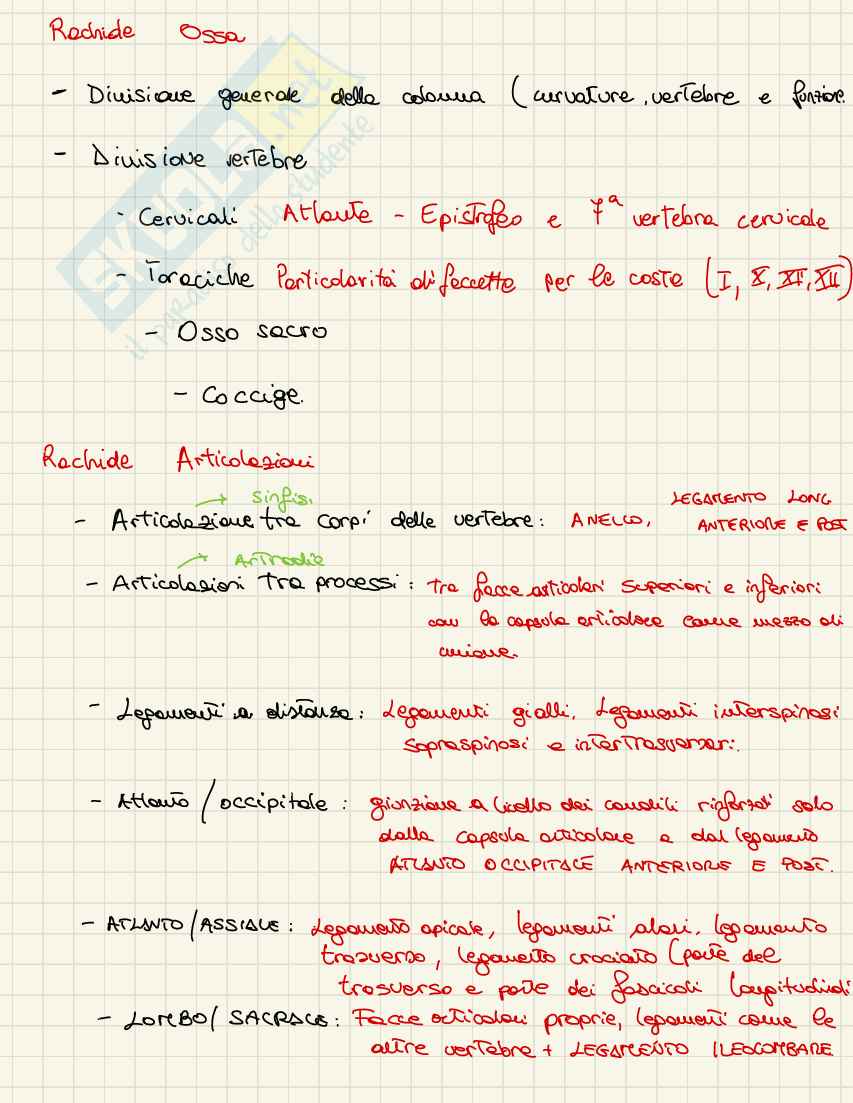 Rachide Ossa
- Divisione generale della colonna (curvature, vertebre e funzion.
- Divisione vertebre
- Cervicali Atlante - Epistrofeo e 7ª vertebra cervicale
- Toraciche Particolarità di faccette per le coste (I, X, XI, XII)
- Osso sacro
- Coccige.
Rachide Articolazioni
→ Sinfisi
- Articolazione tra corpi delle vertebre: ANELLO, LEGAMENTO LONG
ANTERIORE E POST
→ Artrodie
- Articolazioni tra processi: tra facce articolari superiori e inferiori
con la capsula articolare come mezzo di
unione.
- Legamenti a distanza: Legamenti gialli, Legamenti interspinosi
sopraspinosi e intertrasversari.
- Atlanto/occipitale: giunzione a livello dei condili rinforzati solo
dalla capsula articolare e dal legamento
ATLANTO OCCIPITALE ANTERIORE E POST.
- ATLANTO/ASSIALE: Legamento apicale, legamenti alari, legamento
trasverso, legamento crociato (parte del
trasverso e parte dei fascicoli longitudinali
- LOMBO/SACRALE: Facce articolari proprie, legamenti come le
altre vertebre + LEGAMENTO ILEOLOMBARE
SKUOLA.net
il paradiso dello studente